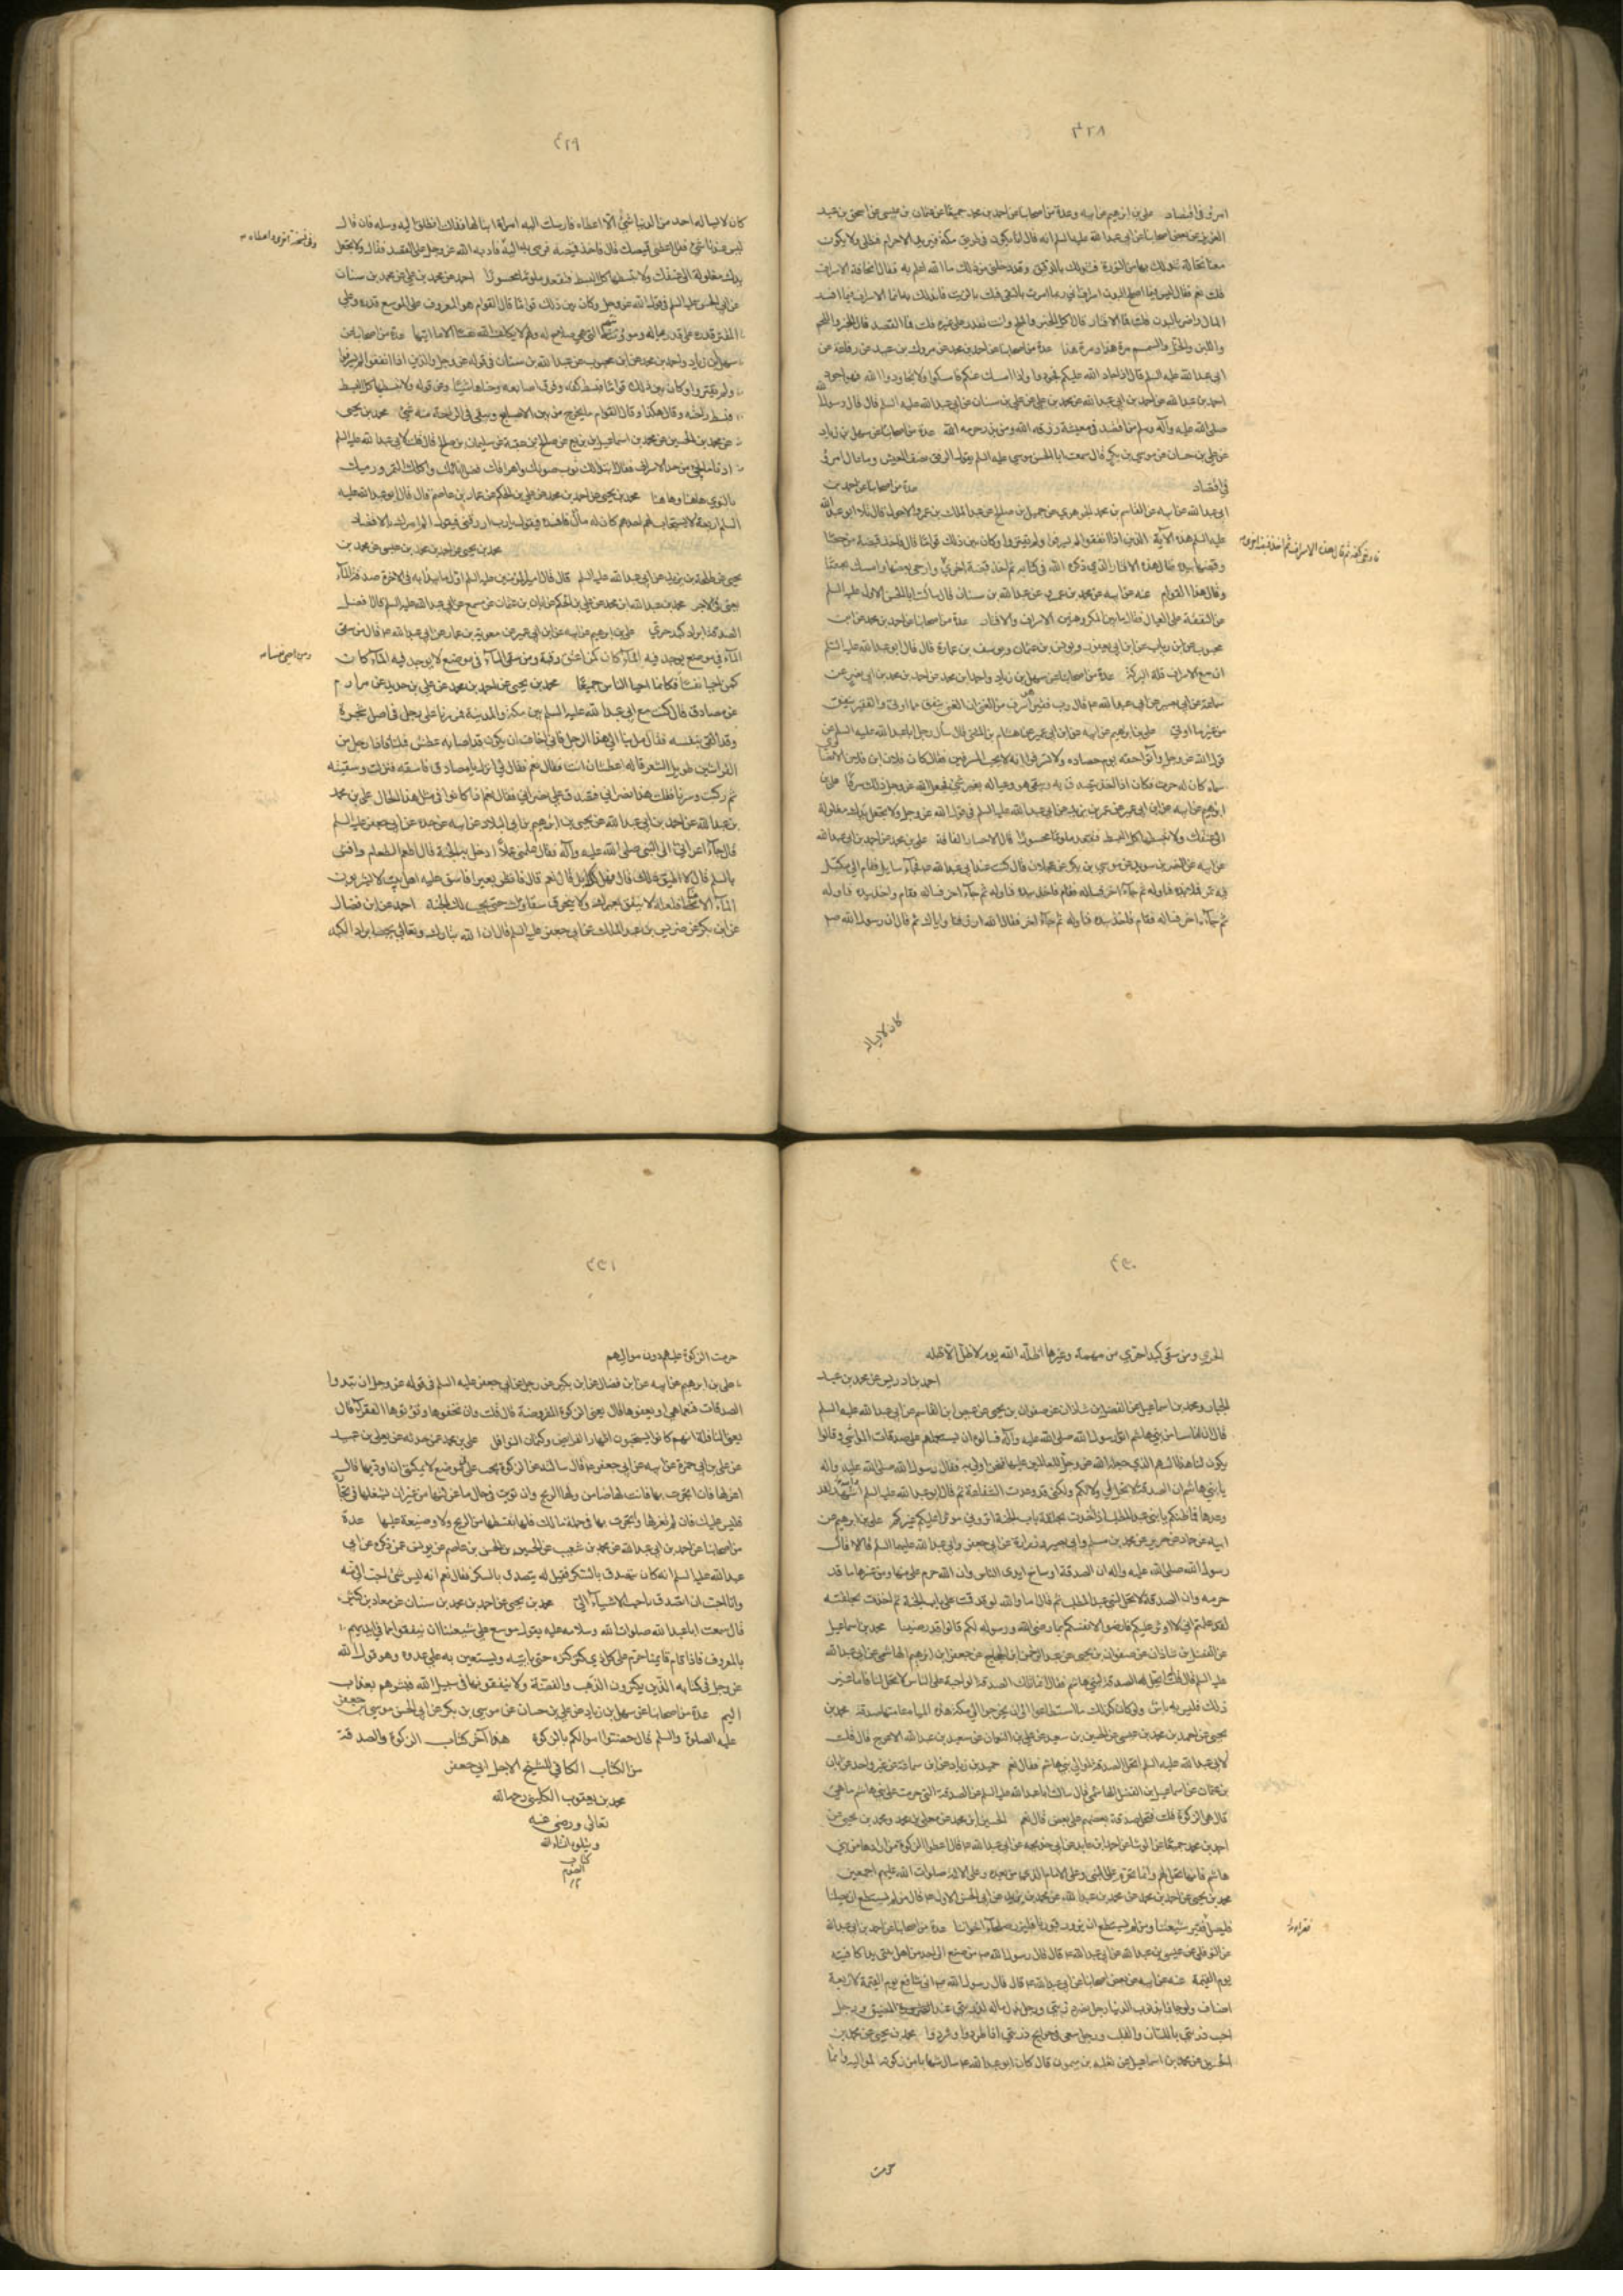 ٤٢٨
امرؤ في اقتصاد علي بن ابرهيم عن ابيه وعدة من اصحابنا عن احمد بن محمد جميعا عن عثمان بن عيسى عن اسحق بن عبد
العزيز عن بعض اصحابنا عن ابي عبد الله عليه السلم انه قال انا نكون في طريق مكة فنريد الاحرام فنطلى ولا يكون
معنا نخالة نتدلك بها من النورة فنتدلك بالدقيق وقد دخلني من ذلك ما الله اعلم به فقال مخافة الاسراف
قلت نعم فقال ليس فيما اصلح البدن اسراف اني ربما امرت بالنقي فيلت بالزيت فاتدلك به انما الاسراف فيما افسد
المال واضر بالبدن قلت فما الاقتار قال اكل الخبز والملح وانت تقدر على غيره قلت فما القصد قال الخبز واللحم
واللبن والخل والسمن مرة هذا ومرة هذا عدة من اصحابنا عن احمد بن محمد عن مروك بن عبيد عن رفاعة عن
ابي عبد الله عليه السلم قال اذا جاد الله عليكم فجودوا واذا امسك عنكم فامسكوا ولا تجاودوا الله فهو اجود
احمد بن عبد الله عن احمد بن ابي عبد الله عن محمد بن علي عن محمد بن سنان عن ابي عبد الله عليه السلم قال قال رسول الله
صلى الله عليه وآله وسلم من اقتصد في معيشته رزقه الله ومن بذر حرمه الله عدة من اصحابنا عن سهل بن زياد
عن علي بن حسان عن موسى بن بكر قال سمعت ابا الحسن موسى عليه السلم يقول الرفق نصف العيش وما عال امرؤ
في اقتصاد عدة من اصحابنا عن احمد بن
ابي عبد الله عن ابيه عن القاسم بن محمد الجوهري عن جميل بن صالح عن عبد الملك بن عمرو الاحول قال تلا ابو عبد الله
عليه السلم هذه الآية الذين اذا انفقوا لم يسرفوا ولم يقتروا وكان بين ذلك قواما قال فاخذ قبضة من حصا
وقبضها بيده فقال هذا الاقتار الذي ذكره الله في كتابه ثم اخذ قبضة اخرى وارخى بعضها وامسك بعضها
وقال هذا القوام عنه عن ابيه عن محمد بن عمرو عن عبد الله بن سنان قال سالت ابا الحسن الاول عليه السلم
عن النفقة على العيال فقال ما بين المكروهين الاسراف والاقتار عدة من اصحابنا عن احمد بن محمد عن ابن
محبوب عن ابن رياب عن ابن ابي يعفور ويوسف بن عمارة قال قال ابو عبد الله عليه السلم
ان مع الاسراف قلة البركة عدة من اصحابنا عن سهل بن زياد واحمد بن محمد عن احمد بن محمد بن ابي نصر عن
سماعة عن ابي بصير عن ابي عبد الله قال رب فقير هو اسرف من الغني ان الغني ينفق مما اوتي والفقير ينفق
من غير ما اوتي علي بن ابرهيم عن ابيه عن ابن ابي عمير عن هشام بن المثنى قال سأل رجل ابا عبد الله عليه السلم عن
قول الله عز وجل وآتوا حقه يوم حصاده ولا تسرفوا انه لا يحب المسرفين فقال كان فلان ابن فلان الانصاري
سماه كان له حرث وكان اذا اخذ يتصدق به ويبقى هو وعياله بغير شيء فجعل الله عز وجل ذلك سرفا علي بن
ابرهيم عن ابيه عن ابن ابي عمير عن عمر بن يزيد عن ابي عبد الله عليه السلم في قول الله عز وجل ولا تجعل يدك مغلولة
الى عنقك ولا تبسطها كل البسط فتقعد ملوما محسورا قال الاحسار الفاقة علي بن محمد عن احمد بن ابي عبد الله
عن ابيه عن النضر بن سويد عن موسى بن بكر عن عجلان قال كنت عند ابي عبد الله فجاء سايل فقام الى مكتل
فيه تمر فملأ يده فناوله ثم جاء آخر فساله فقام فاخذ بيده فناوله ثم جاء آخر فساله فقام واخذ بيده فناوله
ثم جاء آخر فساله فقام فاخذ بيده فناوله ثم جاء آخر فقال الله رازقنا واياك ثم قال ان رسول الله ص
كان لا يساله
٤٢٩
كان لا يساله احد من الدنيا شيئا الا اعطاه فارسلت اليه امراة ابنا لها فقالت انطلق اليه وسله فان قال
ليس عندنا شيء فقل اعطني قميصك قال فاخذ قميصه فرمى به اليه فادبه الله عز وجل على القصد فقال ولا تجعل
يدك مغلولة الى عنقك ولا تبسطها كل البسط فتقعد ملوما محسورا احمد عن محمد بن علي عن محمد بن سنان
عن ابي الحسن عليه السلم في قول الله عز وجل وكان بين ذلك قواما قال القوام هو المعروف على الموسع قدره وعلى
المقتر قدره على قدر عياله ومؤنتهم التي هي صلاح له ولهم لا يكلف الله نفسا الا ما اتيها عدة من اصحابنا عن
سهل بن زياد واحمد بن محمد عن ابن محبوب عن عبد الله بن سنان في قوله عز وجل والذين اذا انفقوا لم يسرفوا
ولم يقتروا وكان بين ذلك قواما فبسط كفه وفرق اصابعه وحناها شيئا وعن قوله ولا تبسطها كل البسط
فبسط راحته وقال هكذا وقال القوام ما يخرج من بين الاصابع ويبقى في الراحة منه شيء محمد بن يحيى
عن محمد بن الحسين عن محمد بن اسماعيل بن بزيع عن صالح بن عقبة عن سليمان بن صالح قال قلت لابي عبد الله عليه السلم
ادنى ما يجيء من حد الاسراف فقال ابتذالك ثوب صونك واهراقك فضل انائك واكلك التمر ورميك
بالنوى هاهنا وهاهنا محمد بن يحيى عن احمد بن محمد عن علي بن الحكم عن عمار بن عاصم قال قال ابو عبد الله عليه
السلم اربعة لا يستجاب لهم احدهم كان له مال فافسده فيقول يا رب ارزقني فيقول الم امرك بالاقتصاد
محمد بن يحيى عن احمد بن محمد بن عيسى عن محمد بن
يحيى عن طلحة بن زيد عن ابي عبد الله عليه السلم قال قال امير المؤمنين عليه السلم اول ما يبدأ به في الآخرة صدقة الماء
يعني في الاجر محمد بن عبد الله ابن محمد عن علي بن الحكم عن ابان بن عثمان عن مسمع عن ابي عبد الله عليه السلم قال افضل
الصدقة ابراد كبد حرى علي بن ابرهيم عن ابيه عن ابن ابي عمير عن معوية بن عمار عن ابي عبد الله قال من سقى
الماء في موضع يوجد فيه الماء كان كمن اعتق رقبة ومن سقى الماء في موضع لا يوجد فيه الماء كان
كمن احيا نفسا فكانما احيا الناس جميعا محمد بن يحيى عن احمد بن محمد عن علي بن حديد عن مرازم
عن مصادف قال كنت مع ابي عبد الله عليه السلم بين مكة والمدينة فمررنا على رجل في اصل شجرة
وقد القى بنفسه فقال مل بنا الى هذا الرجل فاني اخاف ان يكون قد اصابه عطش فملنا فاذا رجل من
الفراشين طويل الشعر فساله اعطشان انت فقال نعم فقال لي انزل يا مصادف فاسقه فنزلت وسقيته
ثم ركبت وسرنا فقلت هذا نصراني فتصدق على نصراني فقال نعم اذا كانوا في مثل هذا الحال علي بن محمد
بن عبد الله عن احمد بن ابي عبد الله عن يحيى بن ابرهيم بن ابي البلاد عن ابيه عن جده عن ابي جعفر عليه السلم
قال جاء اعرابي الى النبي صلى الله عليه وآله فقال علمني عملا ادخل به الجنة قال اطعم الطعام وافش
السلم قال لا اطيق ذلك قال فهل لك ابل قال نعم قال فانظر بعيرا فاسق عليه اهل بيت لا يشربون
الماء الا غبا فلعله لا ينفق بعيرك ولا ينخرق سقاؤك حتى يجب لك الجنة احمد عن ابن فضال
عن ابن بكير عن ضريس بن عبد الملك عن ابي جعفر عليه السلم قال ان الله تبارك وتعالى يحب ابراد الكبد
٤٣٠
الحرى ومن سقى كبدا حرى من بهيمة وغيرها اظله الله يوم لا ظل الا ظله
احمد بن ادريس عن محمد بن عبد
الجبار ومحمد بن اسماعيل عن الفضل بن شاذان عن صفوان بن يحيى عن عيص ابن القاسم عن ابي عبد الله عليه السلم
قال ان اناسا من بني هاشم اتوا رسول الله صلى الله عليه وآله فسالوه ان يستعملهم على صدقات المواشي وقالوا
يكون لنا هذا السهم الذي جعله الله عز وجل للعاملين عليها فنحن اولى به فقال رسول الله صلى الله عليه وآله
يا بني هاشم ان الصدقة لا تحل لي ولا لكم ولكني قد وعدت الشفاعة ثم قال ابو عبد الله عليه السلم اشهد لقد
وعدها فما ظنكم يا بني عبد المطلب اذا اخذت بحلقة باب الجنة اتروني مؤثرا عليكم غيركم علي بن ابرهيم عن
ابيه عن حماد عن حريز عن محمد بن مسلم وابي بصير وزرارة عن ابي جعفر وابي عبد الله عليهما السلم قالا قال
رسول الله صلى الله عليه وآله ان الصدقة اوساخ ايدي الناس وان الله حرم علي منها ومن غيرها ما قد
حرمه وان الصدقة لا تحل لبني عبد المطلب ثم قال اما والله لو قد قمت على باب الجنة ثم اخذت بحلقته
لقد علمتم اني لا اوثر عليكم فارضوا لانفسكم بما رضي الله ورسوله لكم قالوا قد رضينا محمد بن اسماعيل
عن الفضل بن شاذان عن صفوان بن يحيى عن عبد الرحمن بن الحجاج عن جعفر بن ابرهيم الهاشمي عن ابي عبد الله
عليه السلم قال قلت له اتحل الصدقة لبني هاشم فقال انما تلك الصدقة الواجبة على الناس لا تحل لنا فاما غير
ذلك فليس به باس ولو كان كذلك ما استطاعوا ان يخرجوا الى مكة هذه المياه عامتها صدقة محمد بن
يحيى عن احمد بن محمد بن عيسى عن الحسين بن سعيد عن علي بن النعمان عن سعيد بن عبد الله الاعرج قال قلت
لابي عبد الله عليه السلم اتحل الصدقة لموالي بني هاشم فقال نعم حميد بن زياد عن ابن سماعة عن غير واحد عن ابان
بن عثمان عن اسماعيل بن الفضل الهاشمي قال سالت ابا عبد الله عليه السلم عن الصدقة التي حرمت على بني هاشم ما هي
قال هي الزكوة قلت فتحل صدقة بعضهم على بعض قال نعم الحسين ابن محمد عن معلى بن محمد ومحمد بن يحيى عن
احمد بن محمد جميعا عن الوشا عن احمد بن عايذ عن ابي خديجة عن ابي عبد الله قال اعطوا الزكوة من ارادها من بني
هاشم فانها تحل لهم وانما تحرم على النبي وعلى الامام الذي من بعده وعلى الائمة صلوات الله عليهم اجمعين
محمد بن يحيى عن احمد بن محمد عن محمد بن عبد الله عن محمد بن يزيد عن ابي الحسن الاول قال من لم يستطع ان يصلنا
فليصل فقير شيعتنا ومن لم يستطع ان يزور قبورنا فليزر صلحاء اخواننا عدة من اصحابنا عن احمد بن ابي عبد الله
عن النوفلي عن عيسى بن عبد الله عن ابي عبد الله قال قال رسول الله من صنع الى احد من اهل بيتي يدا كافيته
يوم القيمة عنه عن ابيه عن بعض اصحابنا عن ابي عبد الله قال قال رسول الله اني شافع يوم القيمة لاربعة
اصناف ولو جاؤا بذنوب الدنيا رجل نصر ذريتي ورجل بذل ماله لذريتي عند المضيق ورجل
احب ذريتي باللسان والقلب ورجل سعى في حوايج ذريتي اذا طردوا وشردوا محمد بن يحيى عن محمد بن
الحسين عن محمد بن اسماعيل عن ثعلبة بن ميمون قال كان ابو عبد الله يسال شهابا من زكوته لمواليه وانما
حرمت
٤٣١
حرمت الزكوة عليهم دون مواليهم
علي بن ابرهيم عن ابيه عن ابن فضال عن ابن بكير عن رجل عن ابي جعفر عليه السلم في قوله عز وجل ان تبدوا
الصدقات فنعما هي قال يعني الزكوة المفروضة قال قلت وان تخفوها وتؤتوها الفقراء قال
يعني النافلة انهم كانوا يستحبون اظهار الفرايض وكتمان النوافل علي بن محمد عمن حدثه عن معلى بن عبيد
عن علي بن ابي حمزة عن ابيه عن ابي جعفر قال سالته عن الزكوة تجب علي في موضع لا يمكنني ان اؤديها قال
اعزلها فان اتجرت بها فانت لها ضامن ولها الربح وان تويت في حال ما عزلتها من غير ان تشغلها في تجارة
فليس عليك فان لم تعزلها واتجرت بها في جملة مالك فلها بقسطها من الربح ولا وضيعة عليها عدة
من اصحابنا عن احمد بن ابي عبد الله عن محمد بن شعيب عن الحسين بن الحسن بن عاصم عن يونس عمن ذكره عن ابي
عبد الله عليه السلم انه كان يتصدق بالسكر فقيل له يتصدق بالسكر فقال نعم انه ليس شيء احب الي منه
وانا احب ان اتصدق باحب الاشياء الي محمد بن يحيى عن احمد بن محمد بن سنان عن معاذ بن كثير
قال سمعت ابا عبد الله صلوات الله وسلامه عليه يقول موسع على شيعتنا ان ينفقوا مما في ايديهم
بالمعروف فاذا قام قايمنا حرم على كل ذي كنز كنزه حتى ياتيه ويستعين به على عدوه وهو قول الله
عز وجل في كتابه الذين يكنزون الذهب والفضة ولا ينفقونها في سبيل الله فبشرهم بعذاب
اليم عدة من اصحابنا عن سهل بن زياد عن علي بن حسان عن موسى بن بكر عن ابي الحسن موسى بن جعفر
عليه الصلوة والسلم قال حصنوا اموالكم بالزكوة هذا آخر كتاب الزكوة والصدقة
من الكتاب الكافي للشيخ الاجل ابي جعفر
محمد بن يعقوب الكليني رحمه الله
تعالى ورضي عنه
ويتلوه انشاء الله
كتاب
الصوم